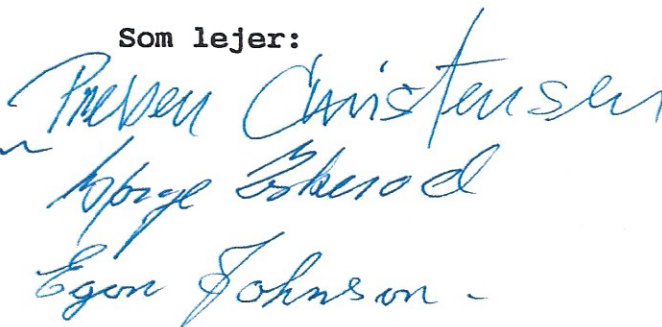 Som lejer:
Preben Christensen
Børge
Egon Johnson -